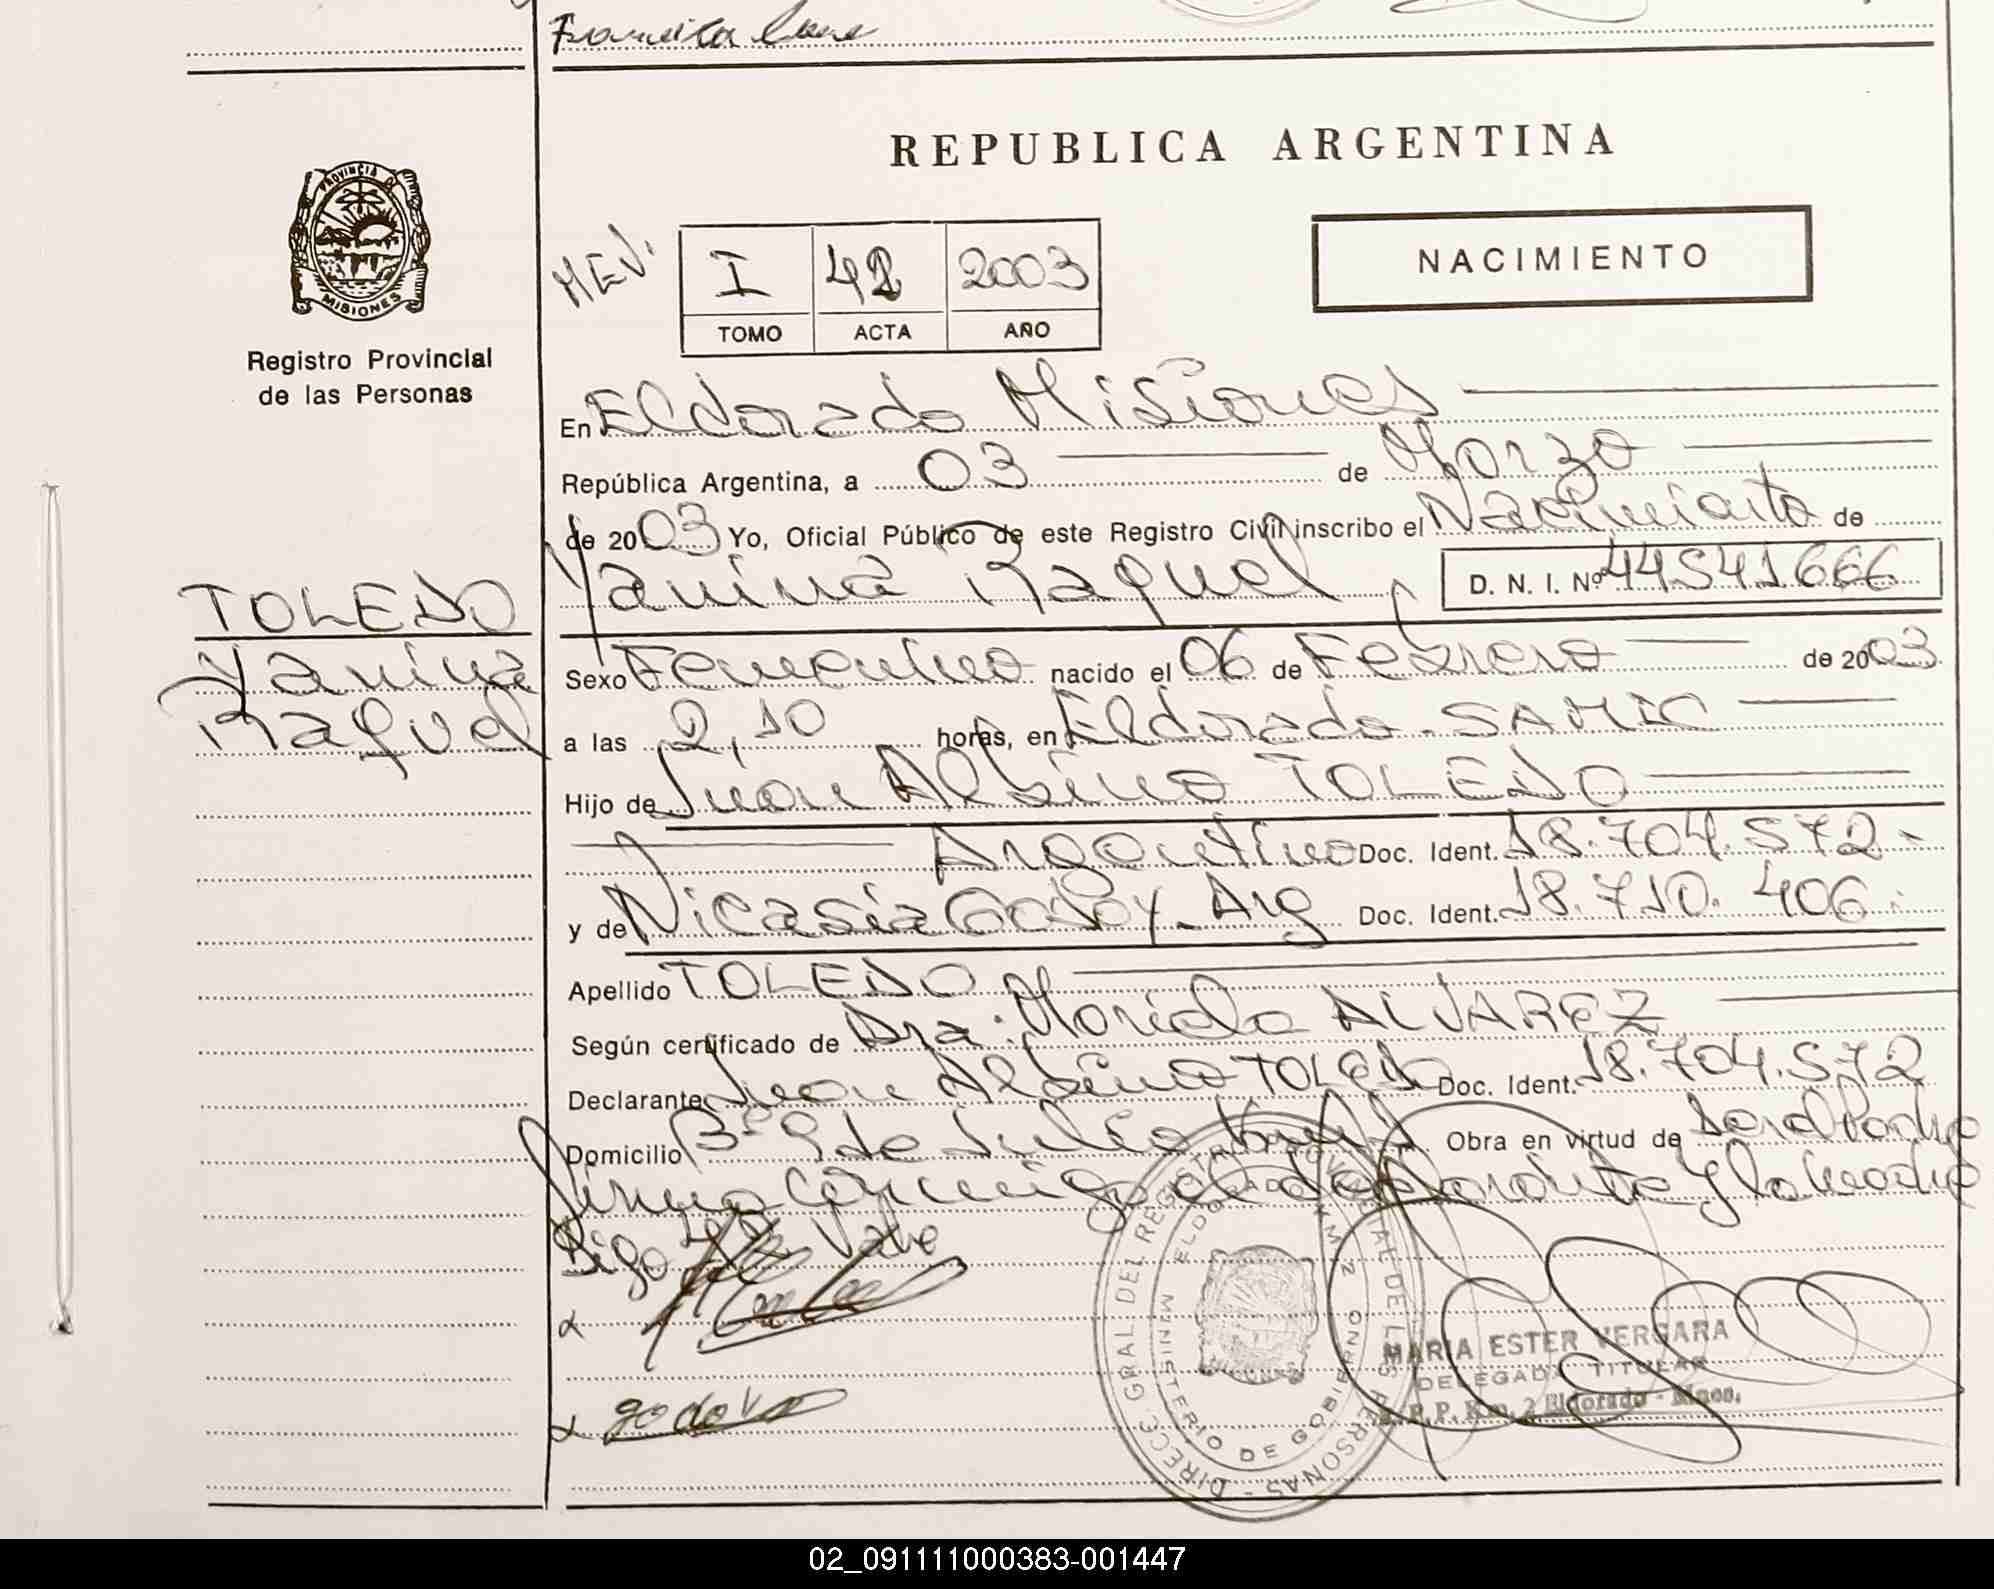 Francisca
REPUBLICA ARGENTINA
PROVINCIA DE
MISIONES
Registro Provincial
de las Personas
NACIMIENTO
I 42 2003
TOMO ACTA AÑO
En Eldorado Misiones
República Argentina, a 03 de Marzo
de 2003 Yo, Oficial Público de este Registro Civil inscribo el Nacimiento de
Yanina Raquel D. N. I. Nº 44541666
TOLEDO
Yanina
Raquel
Sexo Femenino nacido el 06 de Febrero de 2003
a las 2,10 horas, en Eldorado. SAMIC
Hijo de Juan Albino TOLEDO
Argentino Doc. Ident. 18.704.572-
y de Nicasia Godoy - Arg Doc. Ident. 18.710.406.
Apellido TOLEDO
Según certificado de Dra. ALVAREZ
Declarante Juan Albino TOLEDO Doc. Ident. 18.704.572
Domicilio Bº 9 de Julio Obra en virtud de
Firma conmigo el declarante y la madre
Digo 42 Vale
godoy
DIRECC. GRAL. DEL REGISTRO PROVINCIAL DE LAS PERSONAS -
MINISTERIO DE GOBIERNO
ELDORADO KM 2
MARIA ESTER VERGARA
DELEGADA TITULAR
R.P.P. Km. 2 Eldorado - Mnes.
02_091111000383-001447